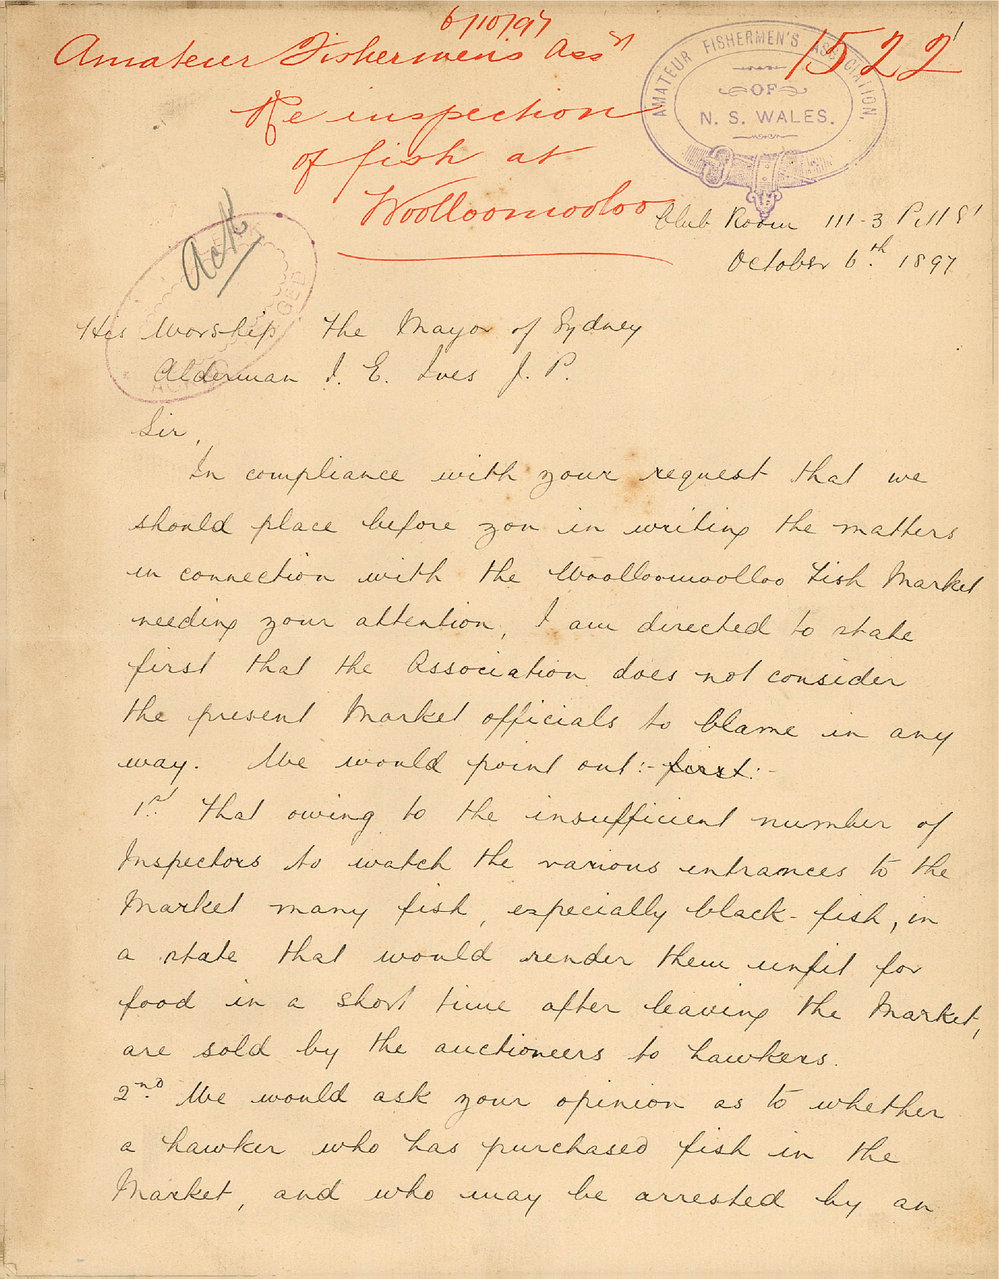 6/10/97
Amateur Fishermen's Assn
1522
Re inspection
of fish at
Woolloomooloo
AMATEUR FISHERMEN'S ASSOCIATION,
OF
N. S. WALES.
Ack
Club Room 111-3 Pitt St
October 6th. 1897
His Worship the Mayor of Sydney
Alderman I. E. Ives J. P.
Sir,
In compliance with your request that we
should place before you in writing the matters
in connection with the Woolloomoolloo Fish Market
needing your attention, I am directed to state
first that the Association does not consider
the present Market officials to blame in any
way. We would point out:- first:-
1st That owing to the insufficient number of
Inspectors to watch the various entrances to the
Market many fish, especially black-fish, in
a state that would render them unfit for
food in a short time after leaving the Market,
are sold by the auctioneers to hawkers.
2nd. We would ask your opinion as to whether
a hawker who has purchased fish in the
Market, and who may be arrested by an